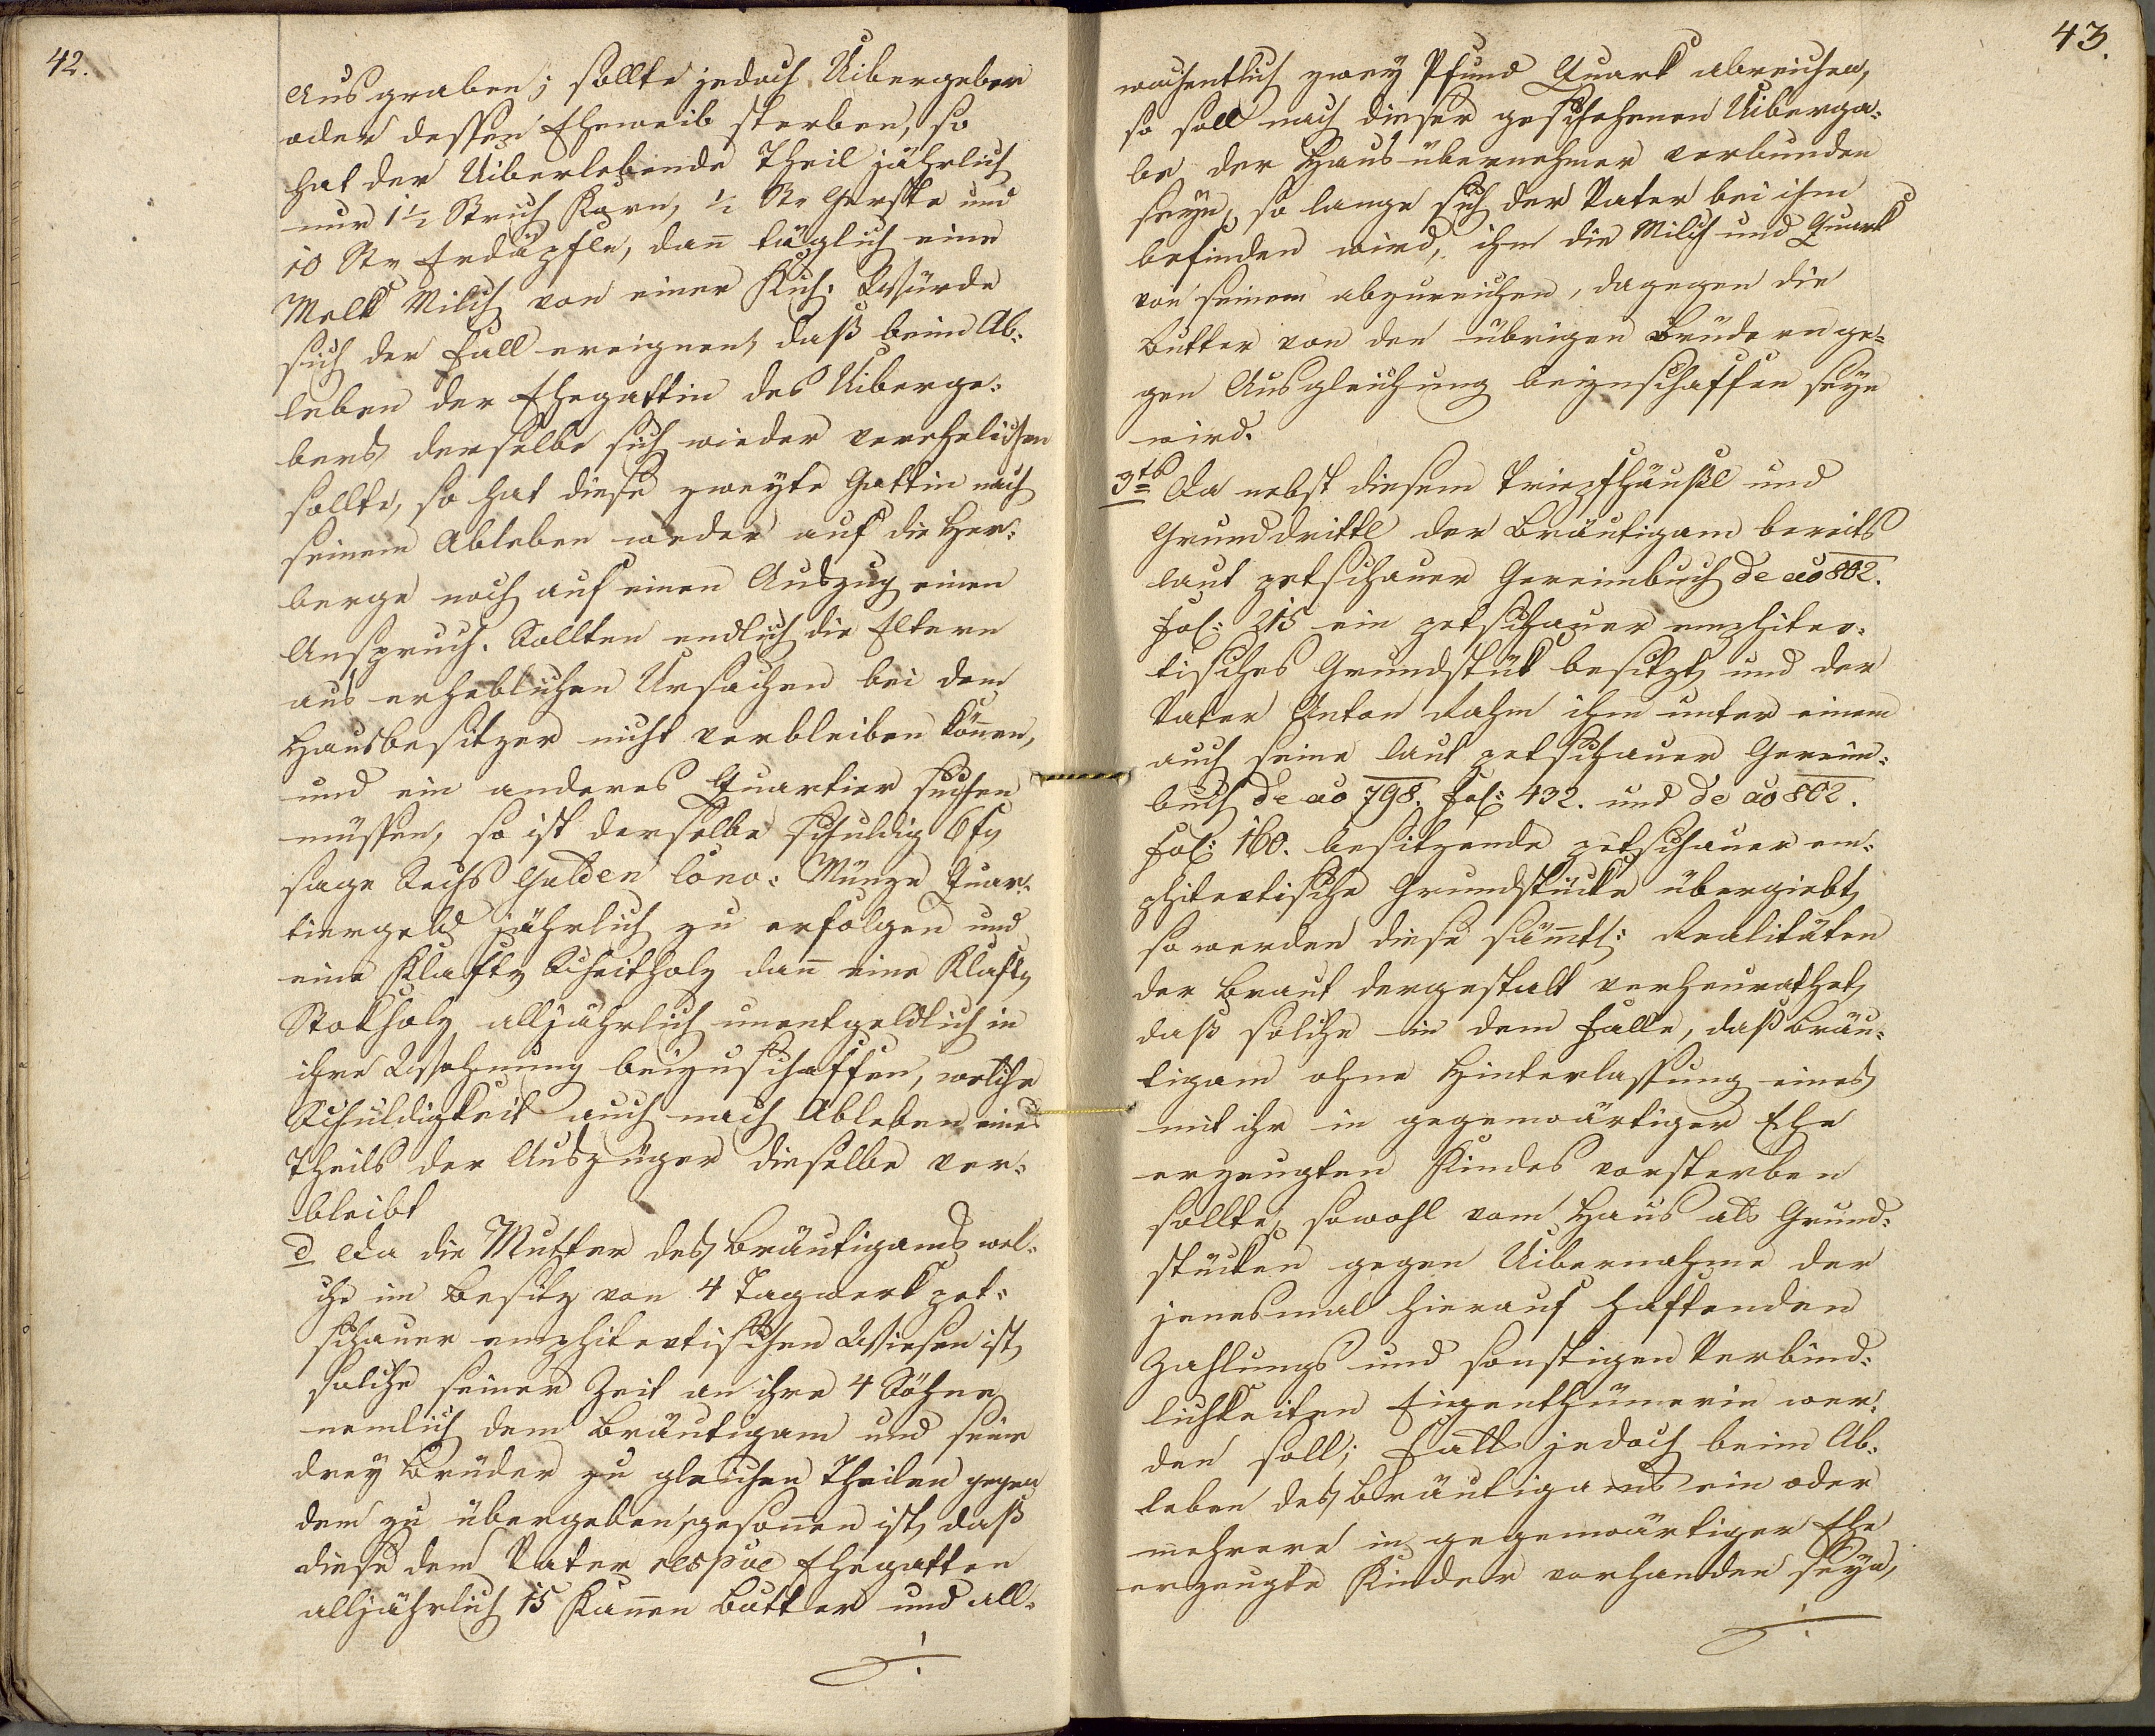 42.
Ausgraben; sollte jedoch Uibergeber
oder dessen Eheweib sterben, so
hat der Uiberlebende Theil jährlich
nur 1 1/2 Strich Korn, 1/2 Str Gerste und
10 Str Erdäpfln, dañ täglich eine
Melk Milch von einer Kuh. Würde
sich der Fall ereignen, daß beim Ab:
leben der Ehegattin des Uiberge:
bers derselbe sich wieder verehelichen
sollte, so hat diese zweyte Gattin nach
seinem Ableben weder auf die Her:
berge noch auf einen Auszug einen
Anspruch. Sollten endlich die Eltern
aus erheblichen Ursachen bei dem
Hausbesitzer nicht verbleiben köñen,
und ein anderes Quartier suchen
müssen, so ist derselbe schuldig 6 fl
sage Sechs Gulden Conv: Münze Quar:
tiergeld jährlich zu erfolgen und
eine Klafter Scheitholz dañ eine Klafter
Stokholz alljährlich unentgeldlich in
ihre Wohnung beizuschaffen, welche
Schuldigkeit auch nach Ableben eines
Theils der Auszüger dieselbe ver:
bleibt
d Da die Mutter des Bräutigams wel:
che im Besitz von 4 Tagwerk pet:
schauer emphitevtischen Wiesen ist,
solche seiner Zeit an ihre 4 Söhne
nemlich dem Bräutigam und seine
drey Brüder zu gleichen Theilen gegen
dem zu übergeben gesoñen ist, daß
diese dem Vater respve Ehegatten
alljährlich 15 Kañen Butter und all:
./.
43.
wochentlich zwey Pfund Quark abreichen,
so soll nach dieser geschehenen Uiberga:
be der Hausübernehmer verbunden
seyn, so lange sich der Vater bei ihm
befinden wird, ihm die Milch und Quark
von seinem abzureichen, dagegen die
Butter von den übrigen Brüdern ge:
gen Ausgleichung beizuschaffen seyn
wird.
3tens Da nebst diesem Tripfhäußl und
Grunddrittl der Bräutigam bereits
laut petschauer Gereimbuch de ao 802.
Fol: 215 ein petschauer emphitev:
tisches Grundstük besitzt, und der
Vater Anton Rahm ihm unter einem
auch seine laut petschauer Gereim:
buch de ao 798. Fol: 432. und de ao 802.
Fol: 160. besitzende petschauer em:
phitevtische Grundstücke übergiebt,
so werden diese säm̃tl: Realitäten
der Braut dergestalt verheurathet,
daß solche in dem Falle, daß Bräu:
tigam ohne Hinterlassung eines
mit ihr in gegenwärtiger Ehe
erzeugten Kindes vorsterben
sollte, sowohl vom Haus als Grund:
stücken gegen Uibernahme der
jenesmal hierauf haftenden
Zahlungs und sonstigen Verbind:
lichkeiten Eigenthümerin wer:
den soll; Falls jedoch beim Ab:
leben des Bräutigams ein oder
mehrere in gegenwärtiger Ehe
erzeugte Kinder vorhanden seyn,
./.